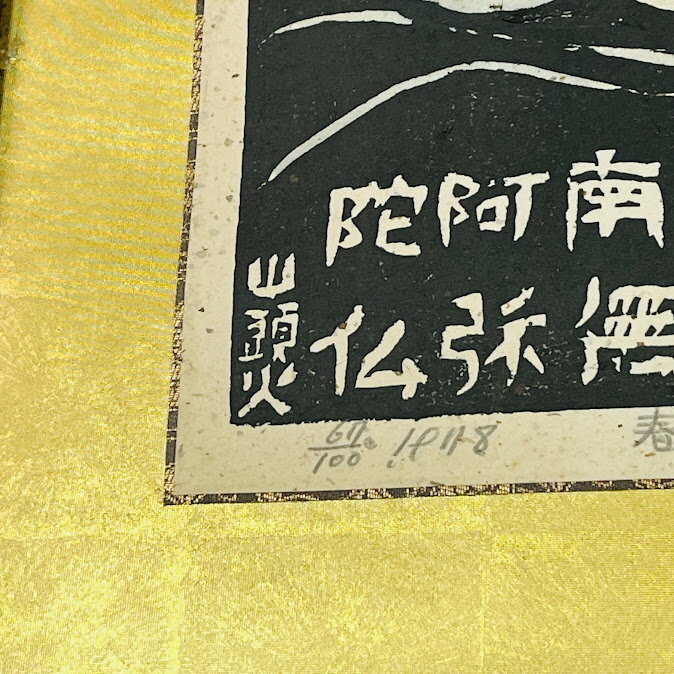 南無
阿弥
陀仏
山頭火
67/100 1978 春